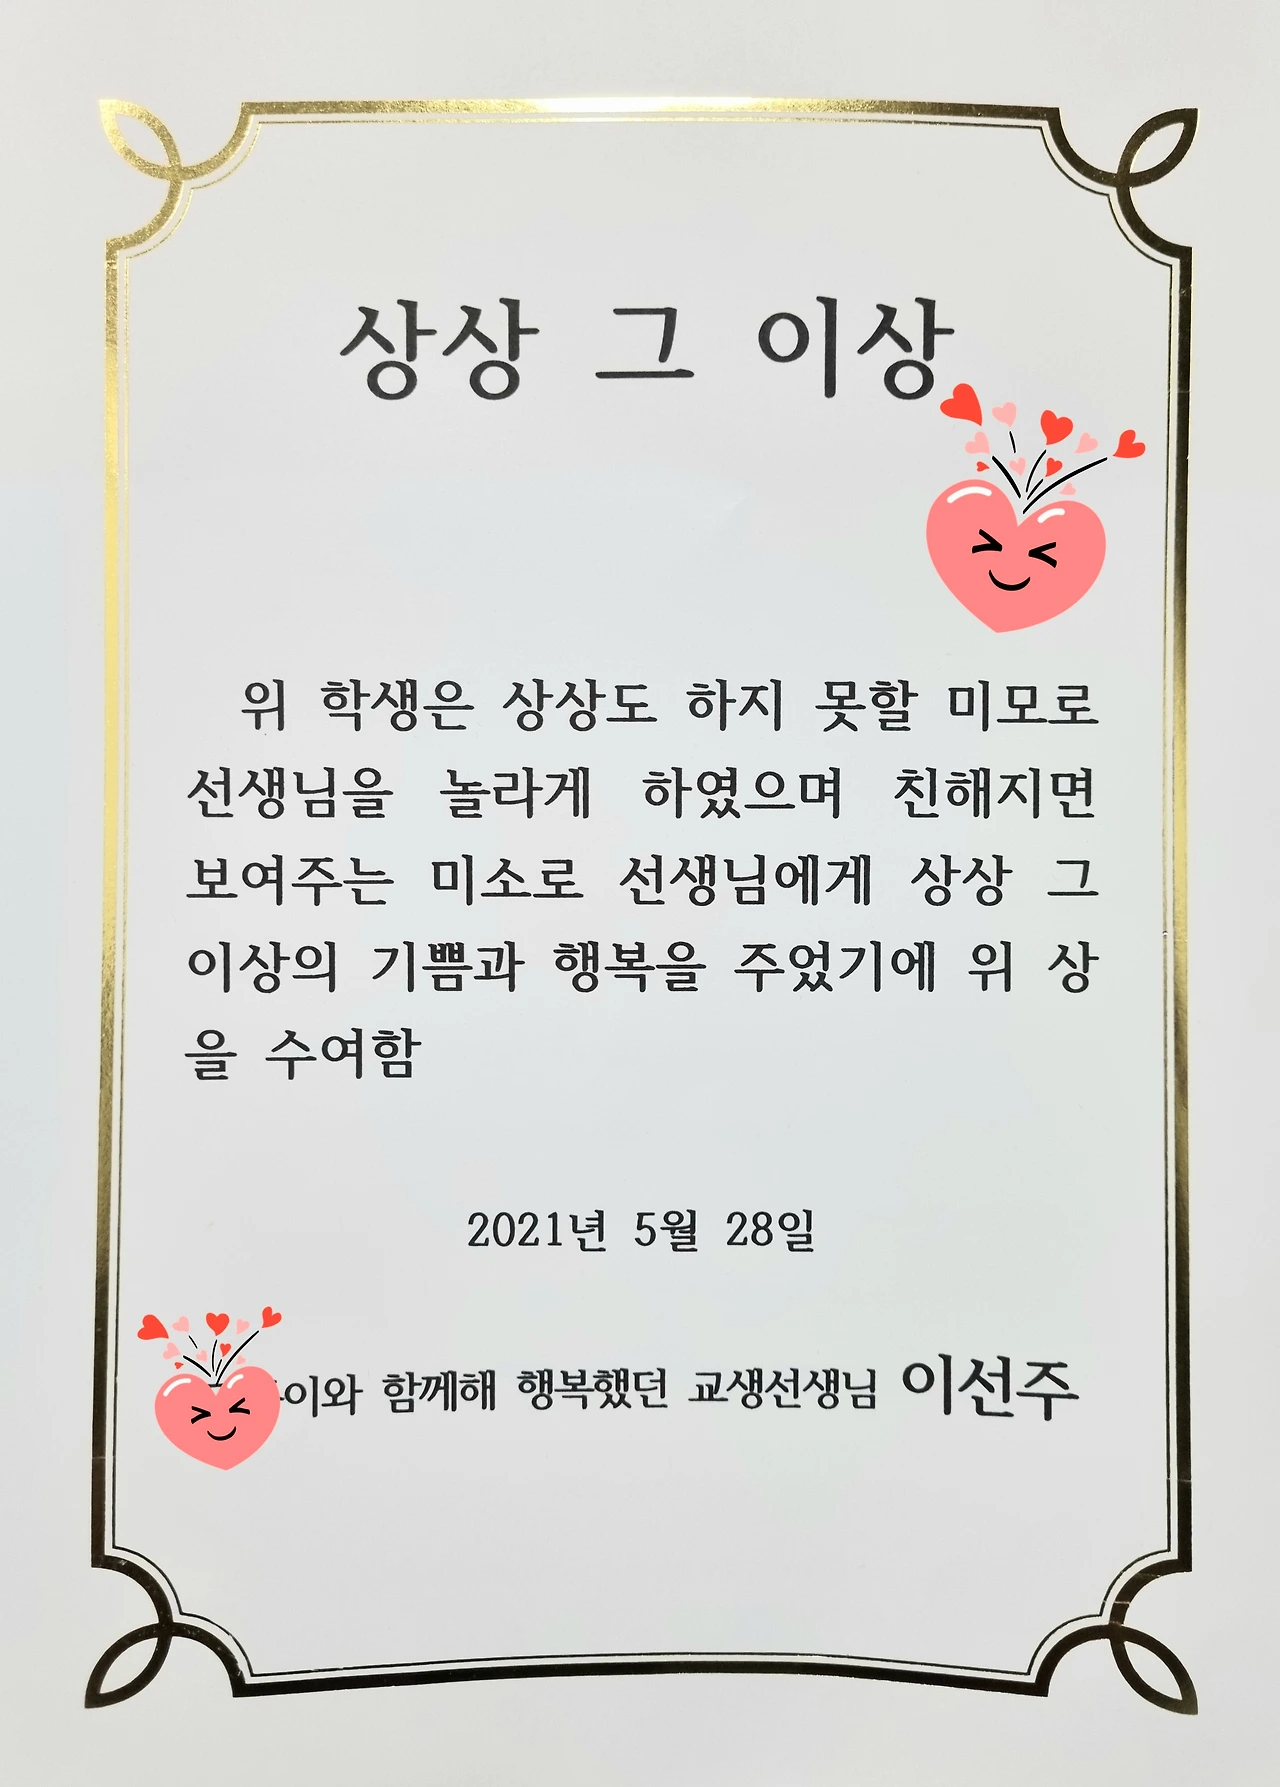 상상 그 이상
위 학생은 상상도 하지 못할 미모로
선생님을 놀라게 하였으며 친해지면
보여주는 미소로 선생님에게 상상 그
이상의 기쁨과 행복을 주었기에 위 상
을 수여함
2021년 5월 28일
함께해 행복했던 교생선생님 이선주